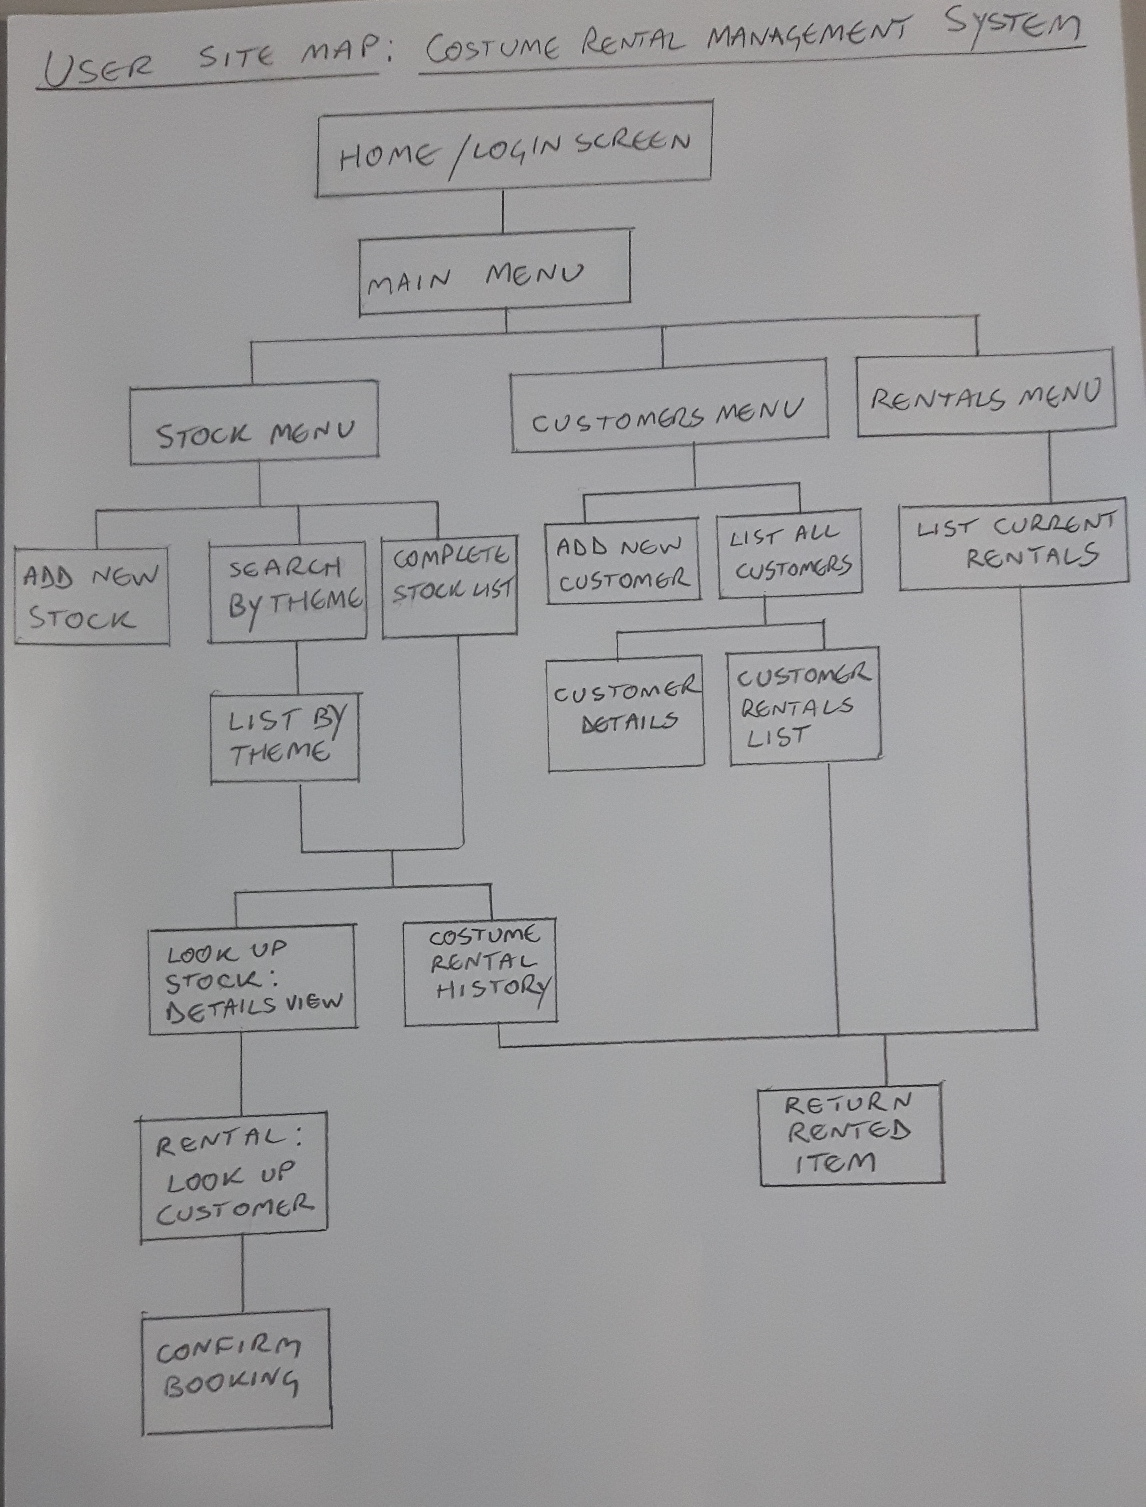 USER SITE MAP: COSTUME RENTAL MANAGEMENT SYSTEM
HOME/LOGIN SCREEN
MAIN MENU
STOCK MENU
CUSTOMERS MENU
RENTALS MENU
ADD NEW
STOCK
SEARCH
BY THEME
COMPLETE
STOCK LIST
ADD NEW
CUSTOMER
LIST ALL
CUSTOMERS
LIST CURRENT
RENTALS
LIST BY
THEME
CUSTOMER
DETAILS
CUSTOMER
RENTALS
LIST
LOOK UP
STOCK:
DETAILS VIEW
COSTUME
RENTAL
HISTORY
RENTAL:
LOOK UP
CUSTOMER
RETURN
RENTED
ITEM
CONFIRM
BOOKING